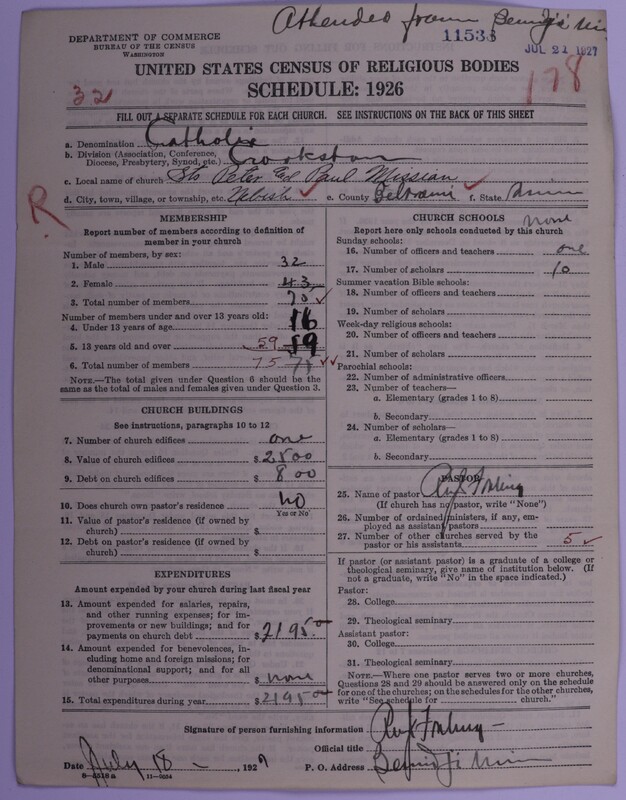 Attended from Bemidji Minn
11533
JUL 21 1927
DEPARTMENT OF COMMERCE
BUREAU OF THE CENSUS
WASHINGTON
UNITED STATES CENSUS OF RELIGIOUS BODIES
SCHEDULE: 1926
32
178
FILL OUT A SEPARATE SCHEDULE FOR EACH CHURCH. SEE INSTRUCTIONS ON THE BACK OF THIS SHEET
a. Denomination Catholic
b. Division (Association, Conference, Diocese, Presbytery, Synod, etc.) Crookston
c. Local name of church Sts Peter and Paul Mission
d. City, town, village, or township, etc. Nebish e. County Beltrami f. State Minn
R
MEMBERSHIP
Report number of members according to definition of member in your church
Number of members, by sex:
1. Male 32
2. Female 43
3. Total number of members 70
Number of members under and over 13 years old:
4. Under 13 years of age 16
5. 13 years old and over 59 59
6. Total number of members 75
NOTE.—The total given under Question 6 should be the same as the total of males and females given under Question 3.
CHURCH BUILDINGS
See instructions, paragraphs 10 to 12
7. Number of church edifices one
8. Value of church edifices $ 2500
9. Debt on church edifices $ 800
10. Does church own pastor's residence? no
Yes or No
11. Value of pastor's residence (if owned by church) $
12. Debt on pastor's residence (if owned by church) $
EXPENDITURES
Amount expended by your church during last fiscal year
13. Amount expended for salaries, repairs, and other running expenses; for improvements or new buildings; and for payments on church debt $ 2195.00
14. Amount expended for benevolences, including home and foreign missions; for denominational support; and for all other purposes $ none
15. Total expenditures during year $ 2195.00
CHURCH SCHOOLS none
Report here only schools conducted by this church
Sunday schools:
16. Number of officers and teachers one
17. Number of scholars 10
Summer vacation Bible schools:
18. Number of officers and teachers
19. Number of scholars
Week-day religious schools:
20. Number of officers and teachers
21. Number of scholars
Parochial schools:
22. Number of administrative officers
23. Number of teachers—
a. Elementary (grades 1 to 8)
b. Secondary
24. Number of scholars—
a. Elementary (grades 1 to 8)
b. Secondary
PASTOR
25. Name of pastor
(If church has no pastor, write "None")
26. Number of ordained ministers, if any, employed as assistant pastors
27. Number of other churches served by the pastor or his assistants 5
If pastor (or assistant pastor) is a graduate of a college or theological seminary, give name of institution below. (If not a graduate, write "No" in the space indicated.)
Pastor:
28. College
29. Theological seminary
Assistant pastor:
30. College
31. Theological seminary
NOTE.—Where one pastor serves two or more churches, Questions 28 and 29 should be answered only on the schedule for one of the churches; on the schedules for the other churches, write "See schedule for church."
Signature of person furnishing information
Official title
Date July 18, 1927 P. O. Address Bemidji Minn
8—5518a 11—9034